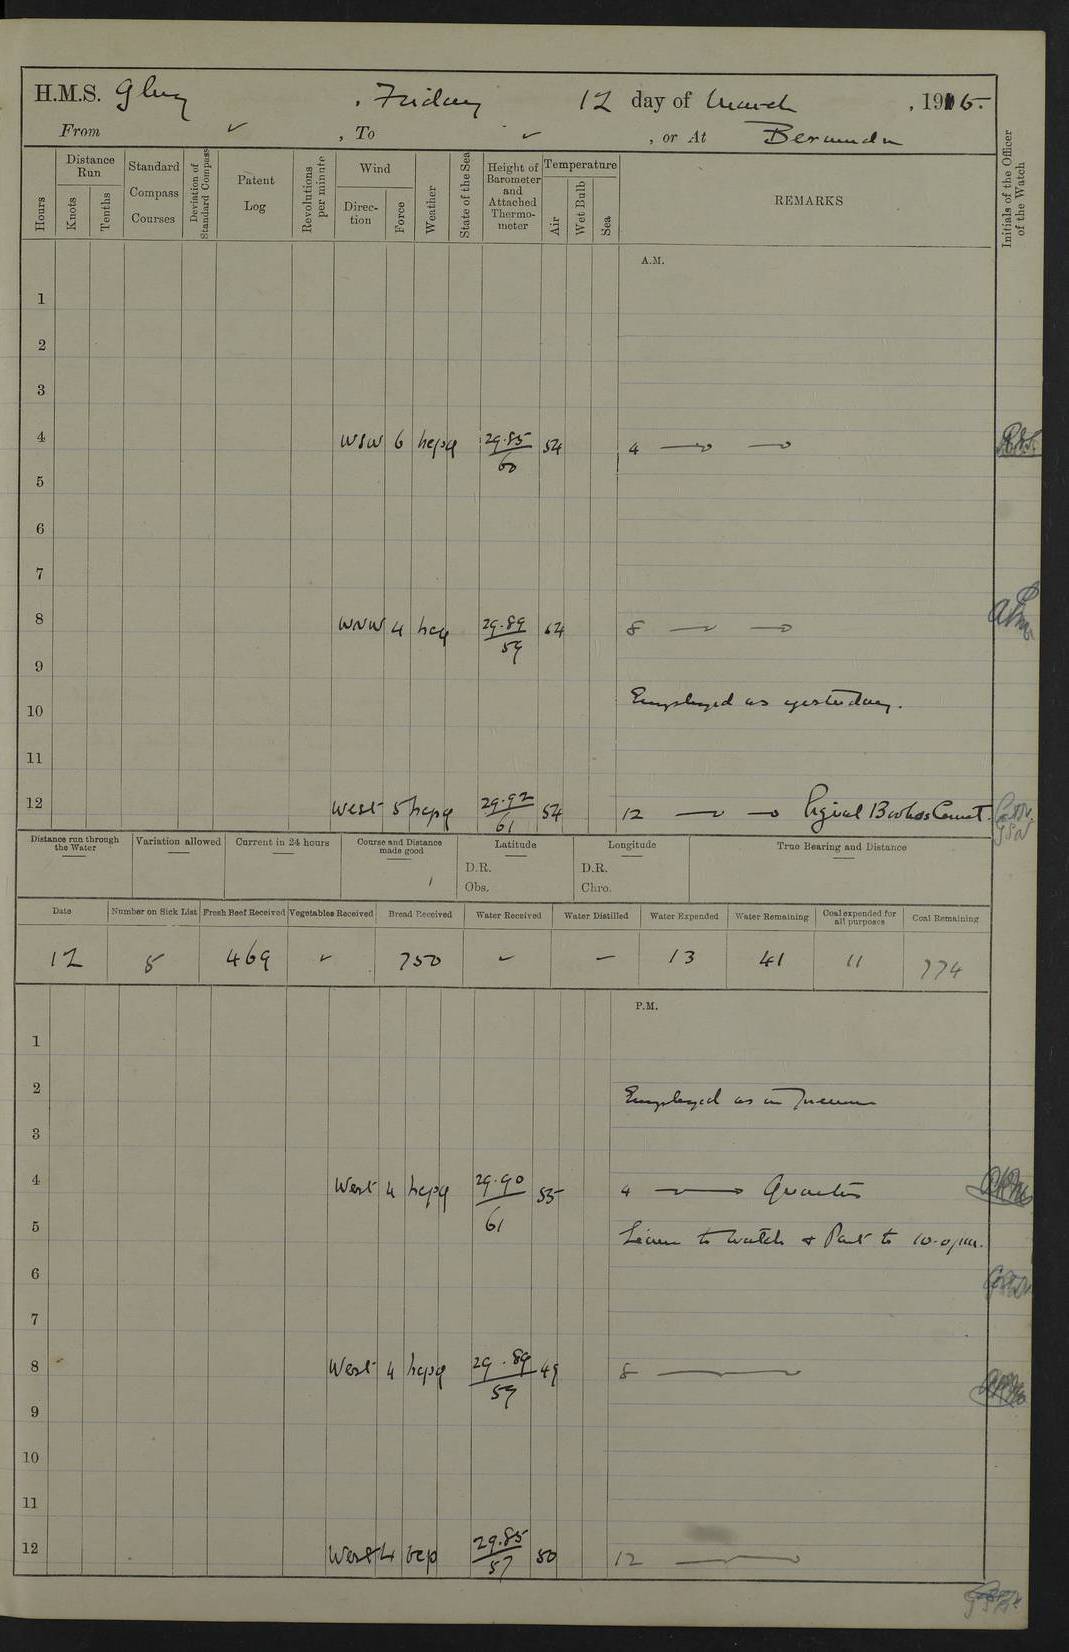 H.M.S. Glory , Friday 12 day of March , 1915.
From ✓ , To ✓ , or At Bermuda
Hours
Distance Run
Knots
Tenths
Standard Compass Courses
Deviation of Standard Compass
Patent Log
Revolutions per minute
Wind
Direction
Force
Weather
State of the Sea
Height of Barometer and Attached Thermometer
Temperature
Air
Wet Bulb
Sea
REMARKS
Initials of the Officer of the Watch
A.M.
1
2
3
4 WSW 6 bcpq 29.85/60 54 4
5
6
7
8 WNW 4 bcq 29.89/59 54 8
9
Employed as yesterday.
10
11
12 West 5 bcpq 29.92/61 54 12 Books Correct.
Distance run through the Water
Variation allowed
Current in 24 hours
Course and Distance made good
Latitude
D.R.
Obs.
Longitude
D.R.
Chro.
True Bearing and Distance
Date Number on Sick List Fresh Beef Received Vegetables Received Bread Received Water Received Water Distilled Water Expended Water Remaining Coal expended for all purposes Coal Remaining
12 5 469 ✓ 750 ✓ – 13 41 11 774
P.M.
1
2 Employed as in Forenoon
3
4 West 4 bcpq 29.90/61 55 4 Quarters
5 Leave to Watch & Part to 10.0 p.m.
6
7
8 West 4 bcpq 29.89/59 49 8
9
10
11
12 West 4 bcp 29.85/57 50 12